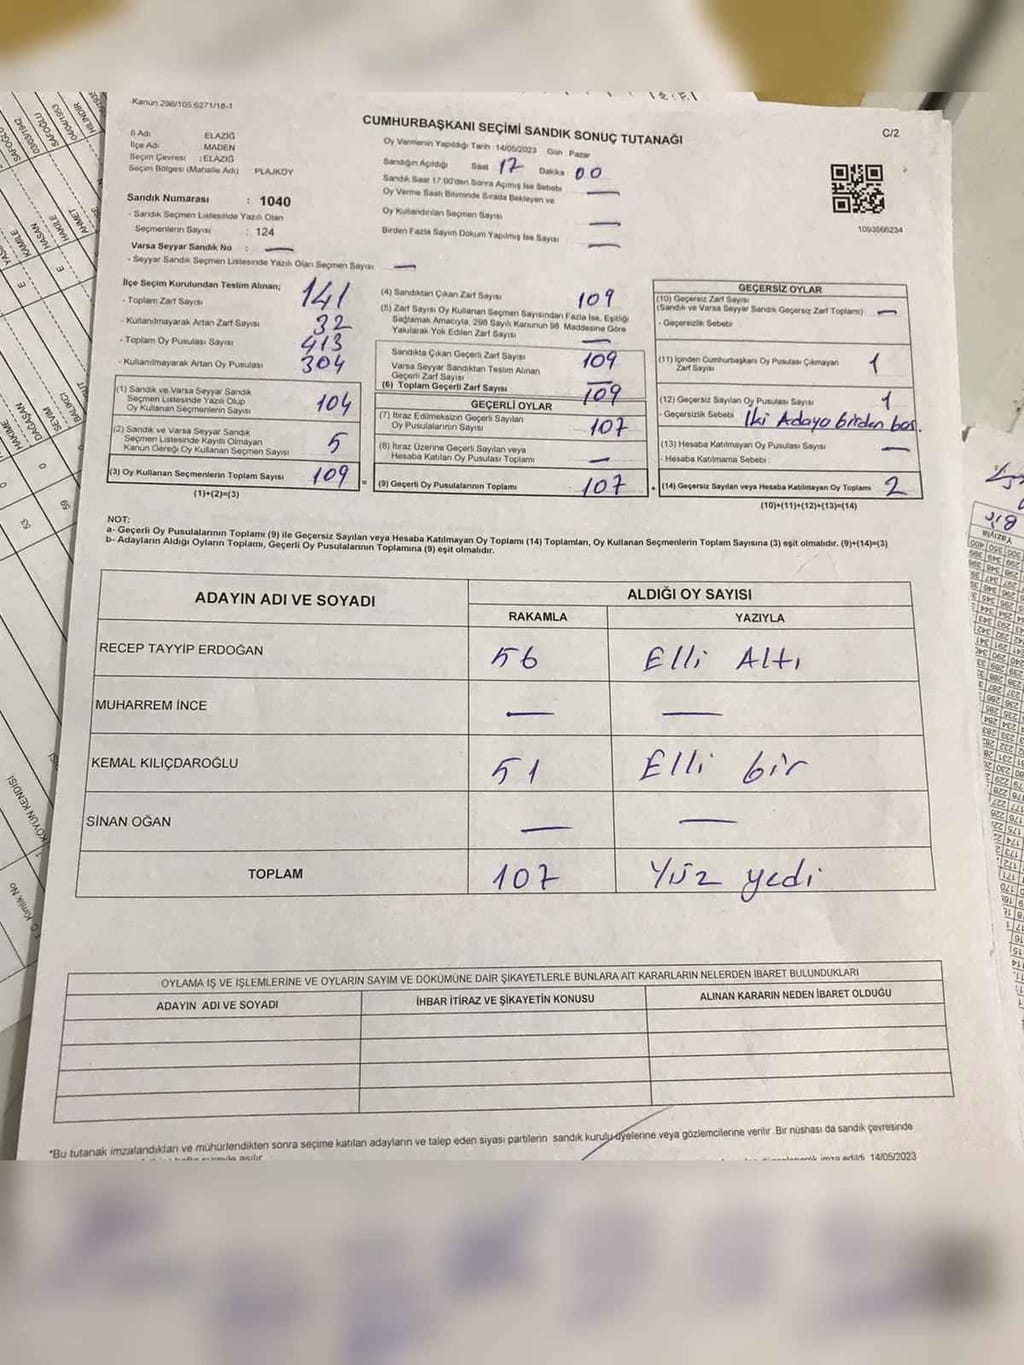 Kanun:298/105,6271/18-1
C/2
CUMHURBAŞKANI SEÇİMİ SANDIK SONUÇ TUTANAĞI
İl Adı ELAZIĞ
İlçe Adı MADEN
Seçim Çevresi : ELAZIĞ
Seçim Bölgesi (Mahalle Adı) PLAJKÖY
Sandık Numarası : 1040
- Sandık Seçmen Listesinde Yazılı Olan
Seçmenlerin Sayısı : 124
Varsa Seyyar Sandık No : —
- Seyyar Sandık Seçmen Listesinde Yazılı Olan Seçmen Sayısı —
Oy Vermenin Yapıldığı Tarih :14/05/2023 Gün : Pazar
Sandığın Açıldığı Saat 17 Dakika 00
Sandık Saat 17:00'den Sonra Açılmış İse Sebebi —
Oy Verme Saati Bitiminde Sırada Bekleyen ve
Oy Kullandırılan Seçmen Sayısı —
Birden Fazla Sayım Döküm Yapılmış İse Sayısı —
1093566234
İlçe Seçim Kurulundan Teslim Alınan;
- Toplam Zarf Sayısı 141
- Kullanılmayarak Artan Zarf Sayısı 32
- Toplam Oy Pusulası Sayısı 413
- Kullanılmayarak Artan Oy Pusulası 304
(1) Sandık ve Varsa Seyyar Sandık
Seçmen Listesinde Yazılı Olup
Oy Kullanan Seçmenlerin Sayısı 104
(2) Sandık ve Varsa Seyyar Sandık
Seçmen Listesinde Kayıtlı Olmayan
Kanun Gereği Oy Kullanan Seçmen Sayısı 5
(3) Oy Kullanan Seçmenlerin Toplam Sayısı 109
(1)+(2)=(3)
(4) Sandıktan Çıkan Zarf Sayısı 109
(5) Zarf Sayısı Oy Kullanan Seçmen Sayısından Fazla İse, Eşitliği
Sağlamak Amacıyla, 298 Sayılı Kanunun 98. Maddesine Göre
Yakılarak Yok Edilen Zarf Sayısı —
Sandıkta Çıkan Geçerli Zarf Sayısı 109
Varsa Seyyar Sandıktan Teslim Alınan
Geçerli Zarf Sayısı —
(6) Toplam Geçerli Zarf Sayısı 109
GEÇERLİ OYLAR
(7) İtiraz Edilmeksizin Geçerli Sayılan
Oy Pusulalarının Sayısı 107
(8) İtiraz Üzerine Geçerli Sayılan veya
Hesaba Katılan Oy Pusulası Toplamı —
(9) Geçerli Oy Pusulalarının Toplamı 107
GEÇERSİZ OYLAR
(10) Geçersiz Zarf Sayısı
(Sandık ve Varsa Seyyar Sandık Geçersiz Zarf Toplamı) —
- Geçersizlik Sebebi
(11) İçinden Cumhurbaşkanı Oy Pusulası Çıkmayan
Zarf Sayısı 1
(12) Geçersiz Sayılan Oy Pusulası Sayısı 1
- Geçersizlik Sebebi İki Adaya birden bas.
(13) Hesaba Katılmayan Oy Pusulası Sayısı —
- Hesaba Katılmama Sebebi :
(14) Geçersiz Sayılan veya Hesaba Katılmayan Oy Toplamı 2
(10)+(11)+(12)+(13)=(14)
NOT:
a- Geçerli Oy Pusulalarının Toplamı (9) ile Geçersiz Sayılan veya Hesaba Katılmayan Oy Toplamı (14) Toplamları, Oy Kullanan Seçmenlerin Toplam Sayısına (3) eşit olmalıdır. (9)+(14)=(3)
b- Adayların Aldığı Oyların Toplamı, Geçerli Oy Pusulalarının Toplamına (9) eşit olmalıdır.
ADAYIN ADI VE SOYADI
ALDIĞI OY SAYISI
RAKAMLA YAZIYLA
RECEP TAYYİP ERDOĞAN 56 Elli Altı
MUHARREM İNCE — —
KEMAL KILIÇDAROĞLU 51 Elli bir
SİNAN OĞAN — —
TOPLAM 107 Yüz yedi
OYLAMA İŞ VE İŞLEMLERİNE VE OYLARIN SAYIM VE DÖKÜMÜNE DAİR ŞİKAYETLERLE BUNLARA AİT KARARLARIN NELERDEN İBARET BULUNDUKLARI
ADAYIN ADI VE SOYADI İHBAR İTİRAZ VE ŞİKAYETİN KONUSU ALINAN KARARIN NEDEN İBARET OLDUĞU
*Bu tutanak imzalandıktan ve mühürlendikten sonra seçime katılan adayların ve talep eden siyasi partilerin sandık kurulu üyelerine veya gözlemcilerine verilir. Bir nüshası da sandık çevresinde
imza edildi. 14/05/2023